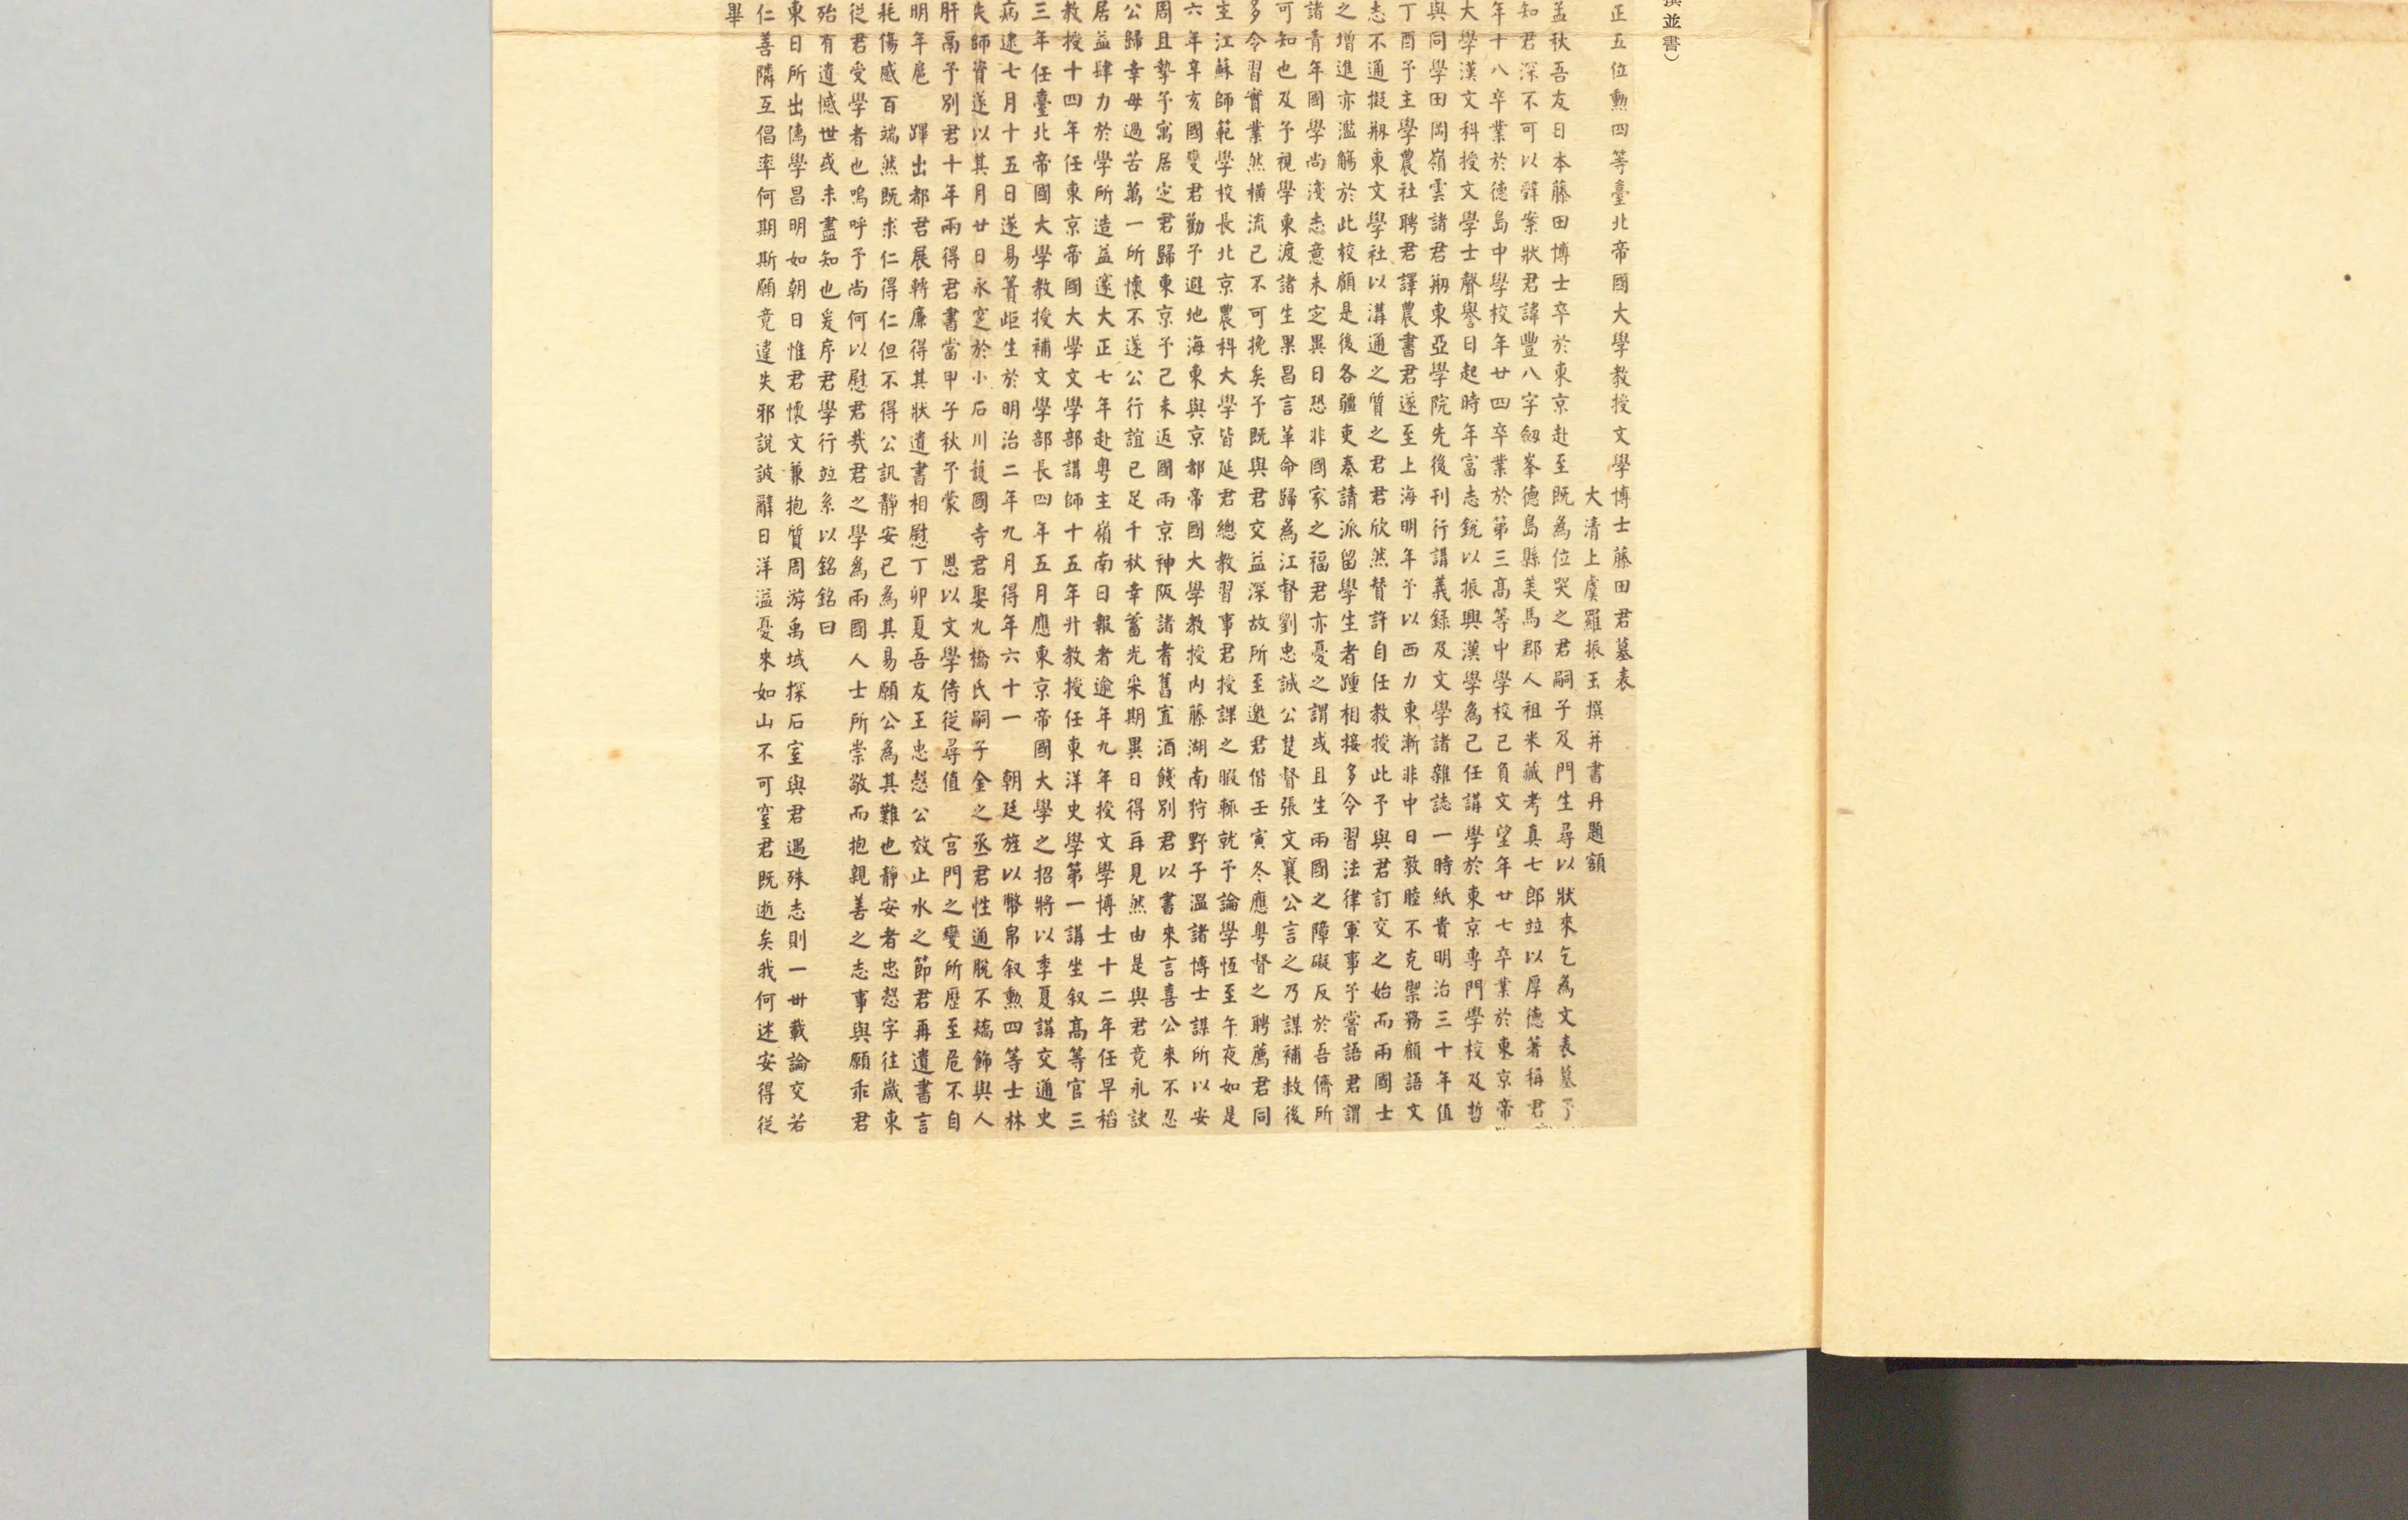 撰並書）
正五位勳四等臺北帝國大學教授文學博士藤田君墓表
大清上虞羅振玉撰并書丹題額
孟秋吾友日本藤田博士卒於東京赴至既為位哭之君嗣子及門生尋以狀來乞為文表墓予
知君深不可以辭案狀君諱豐八字劔峯德島縣美馬郡人祖米藏考真七郎竝以厚德著稱君
年十八卒業於德島中學校年廿四卒業於第三髙等中學校已負文望年廿七卒業於東京帝
大學漢文科授文學士聲譽日起時年富志銳以振興漢學為己任講學於東京專門學校及哲
與同學田岡嶺雲諸君剏東亞學院先後刊行講義錄及文學諸雜誌一時紙貴明治三十年值
丁酉予主學農社聘君譯農書君遂至上海明年予以西力東漸非中日敦睦不克禦務顧語文
志不通擬剏東文學社以溝通之質之君君欣然贊許自任教授此予與君訂交之始而兩國士
之增進亦濫觴於此校顧是後各疆吏奏請派留學生者踵相接多令習法律軍事予嘗語君謂
諸青年國學尚淺志意未定異日恐非國家之福君亦憂之謂或且生兩國之障礙反於吾儕所
可知也及予視學東渡諸生果昌言革命歸為江督劉忠誠公楚督張文襄公言之乃謀補救後
多令習實業然橫流已不可挽矣予既與君交益深故所至邀君偕壬寅冬應粵督之聘薦君同
主江蘇師範學校長北京農科大學皆延君總教習事君授課之暇輒就予論學恆至午夜如是
六年辛亥國變君勸予避地海東與京都帝國大學教授内藤湖南狩野子溫諸博士謀所以安
周且摯予寓居定君歸東京予己未返國兩京神阪諸耆舊置酒餞別君以書來言喜公來不忍
公歸幸毋過苦萬一所懷不遂公行誼已足千秋幸蓄光采期異日得再見然由是與君竟永訣
居益肆力於學所造益邃大正七年赴粵主嶺南日報者逾年九年授文學博士十二年任早稻
教授十四年任東京帝國大學文學部講師十五年升教授任東洋史學第一講坐叙髙等官三
三年任臺北帝國大學教授補文學部長四年五月應東京帝國大學之招將以季夏講交通史
病逮七月十五日遂易簀岠生於明治二年九月得年六十一　朝廷旌以幣帛叙勲四等士林
失師資遂以其月廿日永窆於小石川護國寺君娶九橋氏嗣子金之丞君性通脫不矯飾與人
肝鬲予別君十年兩得君書當甲子秋予蒙　恩以文學侍從尋值　宮門之變所歷至危不自
明年扈　蹕出都君展轉廉得其狀遺書相慰丁卯夏吾友王忠慤公效止水之節君再遺書言
耗傷感百端然既求仁得仁但不得公訊靜安已為其易願公為其難也靜安者忠慤字往歲東
從君受學者也嗚呼予尚何以慰君哉君之學為兩國人士所崇敬而抱親善之志事與願乖君
殆有遺憾世或未盡知也爰序君學行竝系以銘銘曰
東日所出傳學昌明如朝日惟君懷文兼抱質周游禹域探石室與君遇殊志則一卅載論交若
仁善隣互倡率何期斯願竟違失邪說詖辭日洋溢憂來如山不可窒君既逝矣我何述安得從
畢